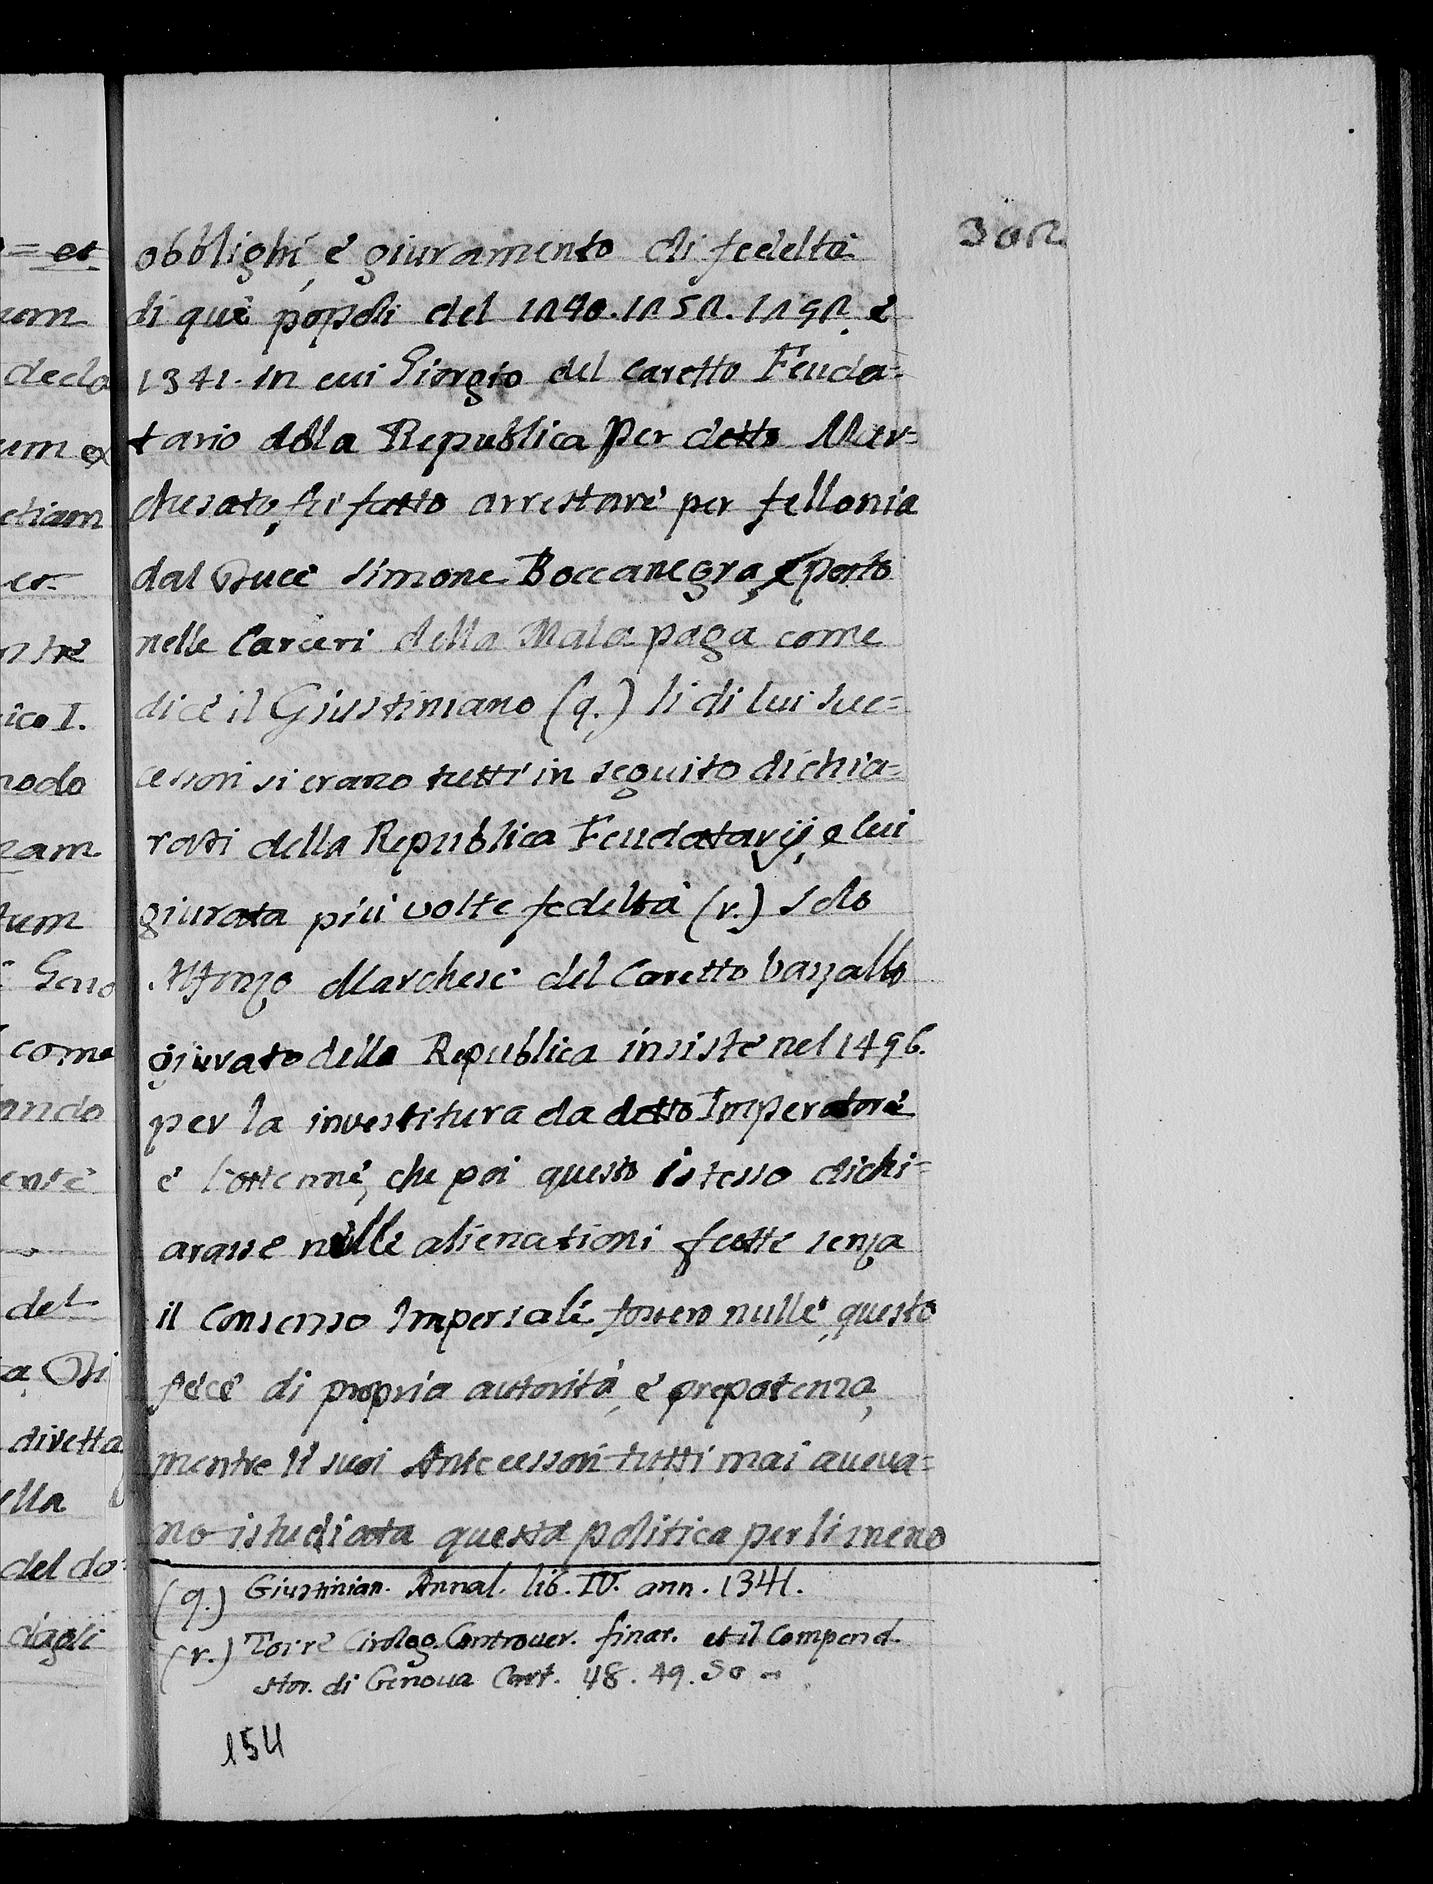 302
obblighi, è giuramento di fedeltà
di què popoli del 1240. 1252. 1292, è
1341. in cui Giorgio del Caretto Feuda=
tario della Republica per detto Mar=
chesato, fu fatto arrestare per fellonia
dal Duce Simone Boccanegra, e posto
nelle Carceri della Mala paga come
dice il Giustiniano (q.) li di lui suc=
cessori si erano tutti in seguito dichia=
rati della Republica Feudatarij, e lui
giurata più volte fedeltà (r.) solo
Alfonzo Marchese del Caretto Vassallo
giurato della Republica insistè nel 1496.
per la investitura da detto Imperatore
è l'ottenne, che poi questo istesso dichi=
arasse nelle alienationi fatte senza
il Consenso Imperiale fossero nulle, questo
fece di propria autorità, è prepotenza,
mentre li suoi Antecessori tutti mai aveva=
no istudiata questa politica per li meno
(q.) Giustinian. Annal. lib. IV. ann. 1341.
(r.) Torre Cirolog. Controver. finar. et il Compend.
stor. di Genova Cart. 48. 49. 50
154